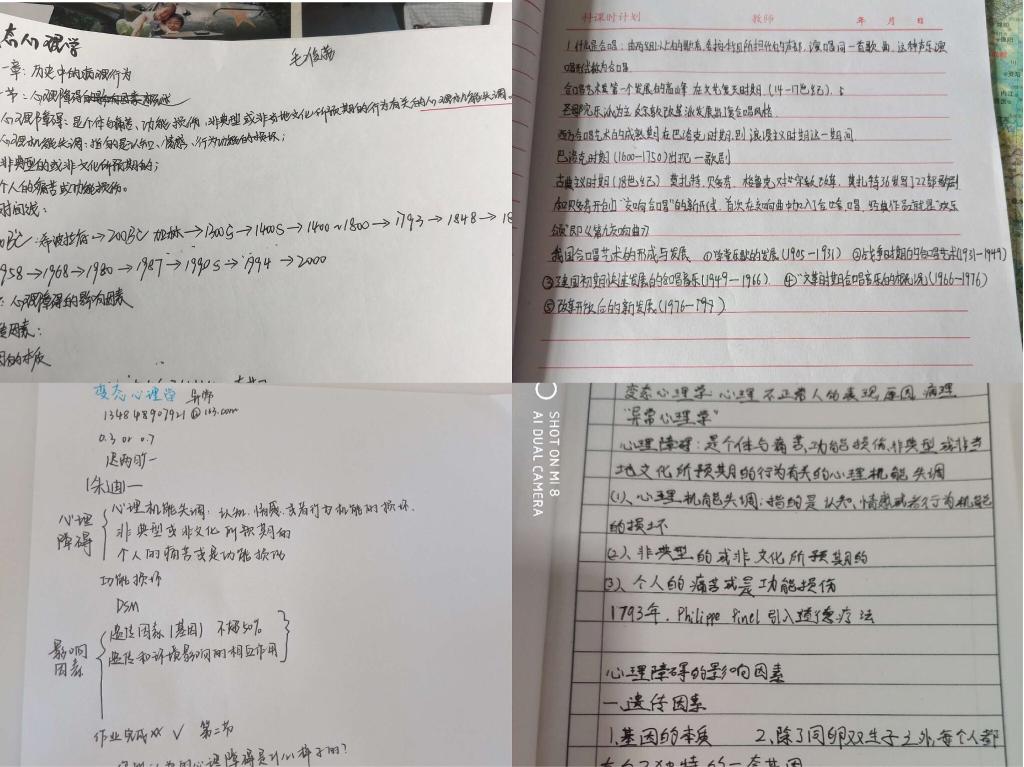 态心理学
一章：历史中的病理行为
一节：心理障碍的影响因素概述
心理障碍：是个体痛苦、功能损伤、非典型或非当地文化所预期的行为有关的心理机能失调。
心理机能失调：指的是认知、情感、行为功能的损坏；
非典型的或非文化所预期的；
个人的痛苦或功能损伤。
时间线：
希波拉底→200BC 加林→1300S→1400S→1400~1800→1793→1848→18
958→1968→1980→1987→1990s→1994→2000
：心理障碍的影响因素
因素：
因的本质
科课时计划 教师 年 月 日
1.什么是合唱：由两组以上的歌者，各按本组所担任的声部，演唱同一首歌曲，这种声乐演
唱形式称为合唱.
合唱艺术其第一个发展的高峰 在文艺复兴时期（14-17世纪）.
乐派为主 众宗教改革派发展出复合唱风格.
西方合唱艺术的成熟期在巴洛克时期，到浪漫主义时期这一期间.
巴洛克时期（1600-1750）出现一歌剧
古典主义时期（18世纪）莫扎特，贝多芬，格鲁克 莫扎特36岁写了22部歌剧
而贝多芬开创“交响合唱”的新形式，首次在交响曲中加入了合唱 经典作品就是“欢乐
颂”即《第九交响曲》
我国合唱艺术的形成与发展 ①学堂乐歌的发展（1905-1931）②战争时期的合唱艺术（1931-1949）
③建国初期迅速发展的合唱音乐（1949-1966）④“文革时期合唱音乐的概况（1966-1976）
⑤改革开放后的新发展（1976-
变态心理学 导师
134848907921@163.com
0.3 or 0.7
选两个
心理障碍
心理机能失调：认知、情感、或者行为机能的损坏.
非典型或非文化所预期的
个人的痛苦或是功能损伤
功能损坏
DSM
影响因素
遗传因素（基因）不够50%
遗传和环境影响的相互作用
作业完成xx √ 第二节
心理障碍是什么样子的？
变态心理学 心理不正常人的表现 原因 病理
“异常心理学”
心理障碍：是个体与痛苦，功能损伤，非典型或非当
地文化所预期的行为有关的心理机能失调
(1)、心理机能失调：指的是认知，情感或者行为机能
的损坏
(2)、非典型的或非文化所预期的
(3)、个人的痛苦或是功能损伤
1793年，Philippe Pinel引入道德疗法
心理障碍的影响因素
一、遗传因素
1.基因的本质 2.除了同卵双生子之外，每个人都
有自己独特的一套基因
SHOT ON MI 8
AI DUAL CAMERA